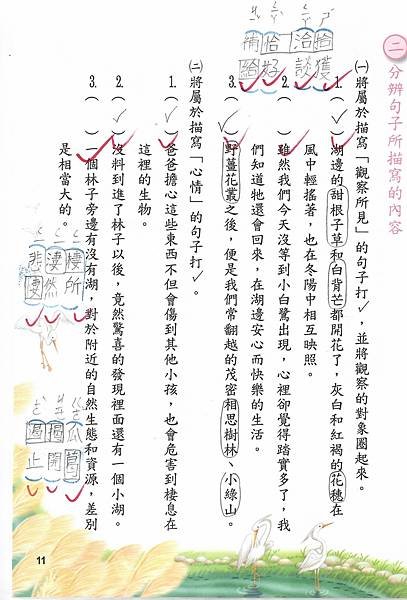 二 分辨句子所描寫的內容
㈠將屬於描寫「觀察所見」的句子打✓，並將觀察的對象圈起來。
1.（✓）湖邊的甜根子草和白背芒都開花了，灰白和紅褐的花穗在
風中輕搖著，也在冬陽中相互映照。
2.（ ）雖然我們今天沒等到小白鷺出現，心裡卻覺得踏實多了，我
們知道牠還會回來，在湖邊安心而快樂的生活。
3.（✓）野薑花叢之後，便是我們常翻越的茂密相思樹林、小綠山。
㈡將屬於描寫「心情」的句子打✓。
1.（✓）爸爸擔心這些東西不但會傷到其他小孩，也會危害到棲息在
這裡的生物。
2.（✓）沒料到進了林子以後，竟然驚喜的發現裡面還有一個小湖。
3.（ ）一個林子旁邊有沒有湖，對於附近的自然生態和資源，差別
是相當大的。
拾獲
洽談
恰好
補給
棲所
淒然
悲悽
瓜葛
揭開
遏止
11